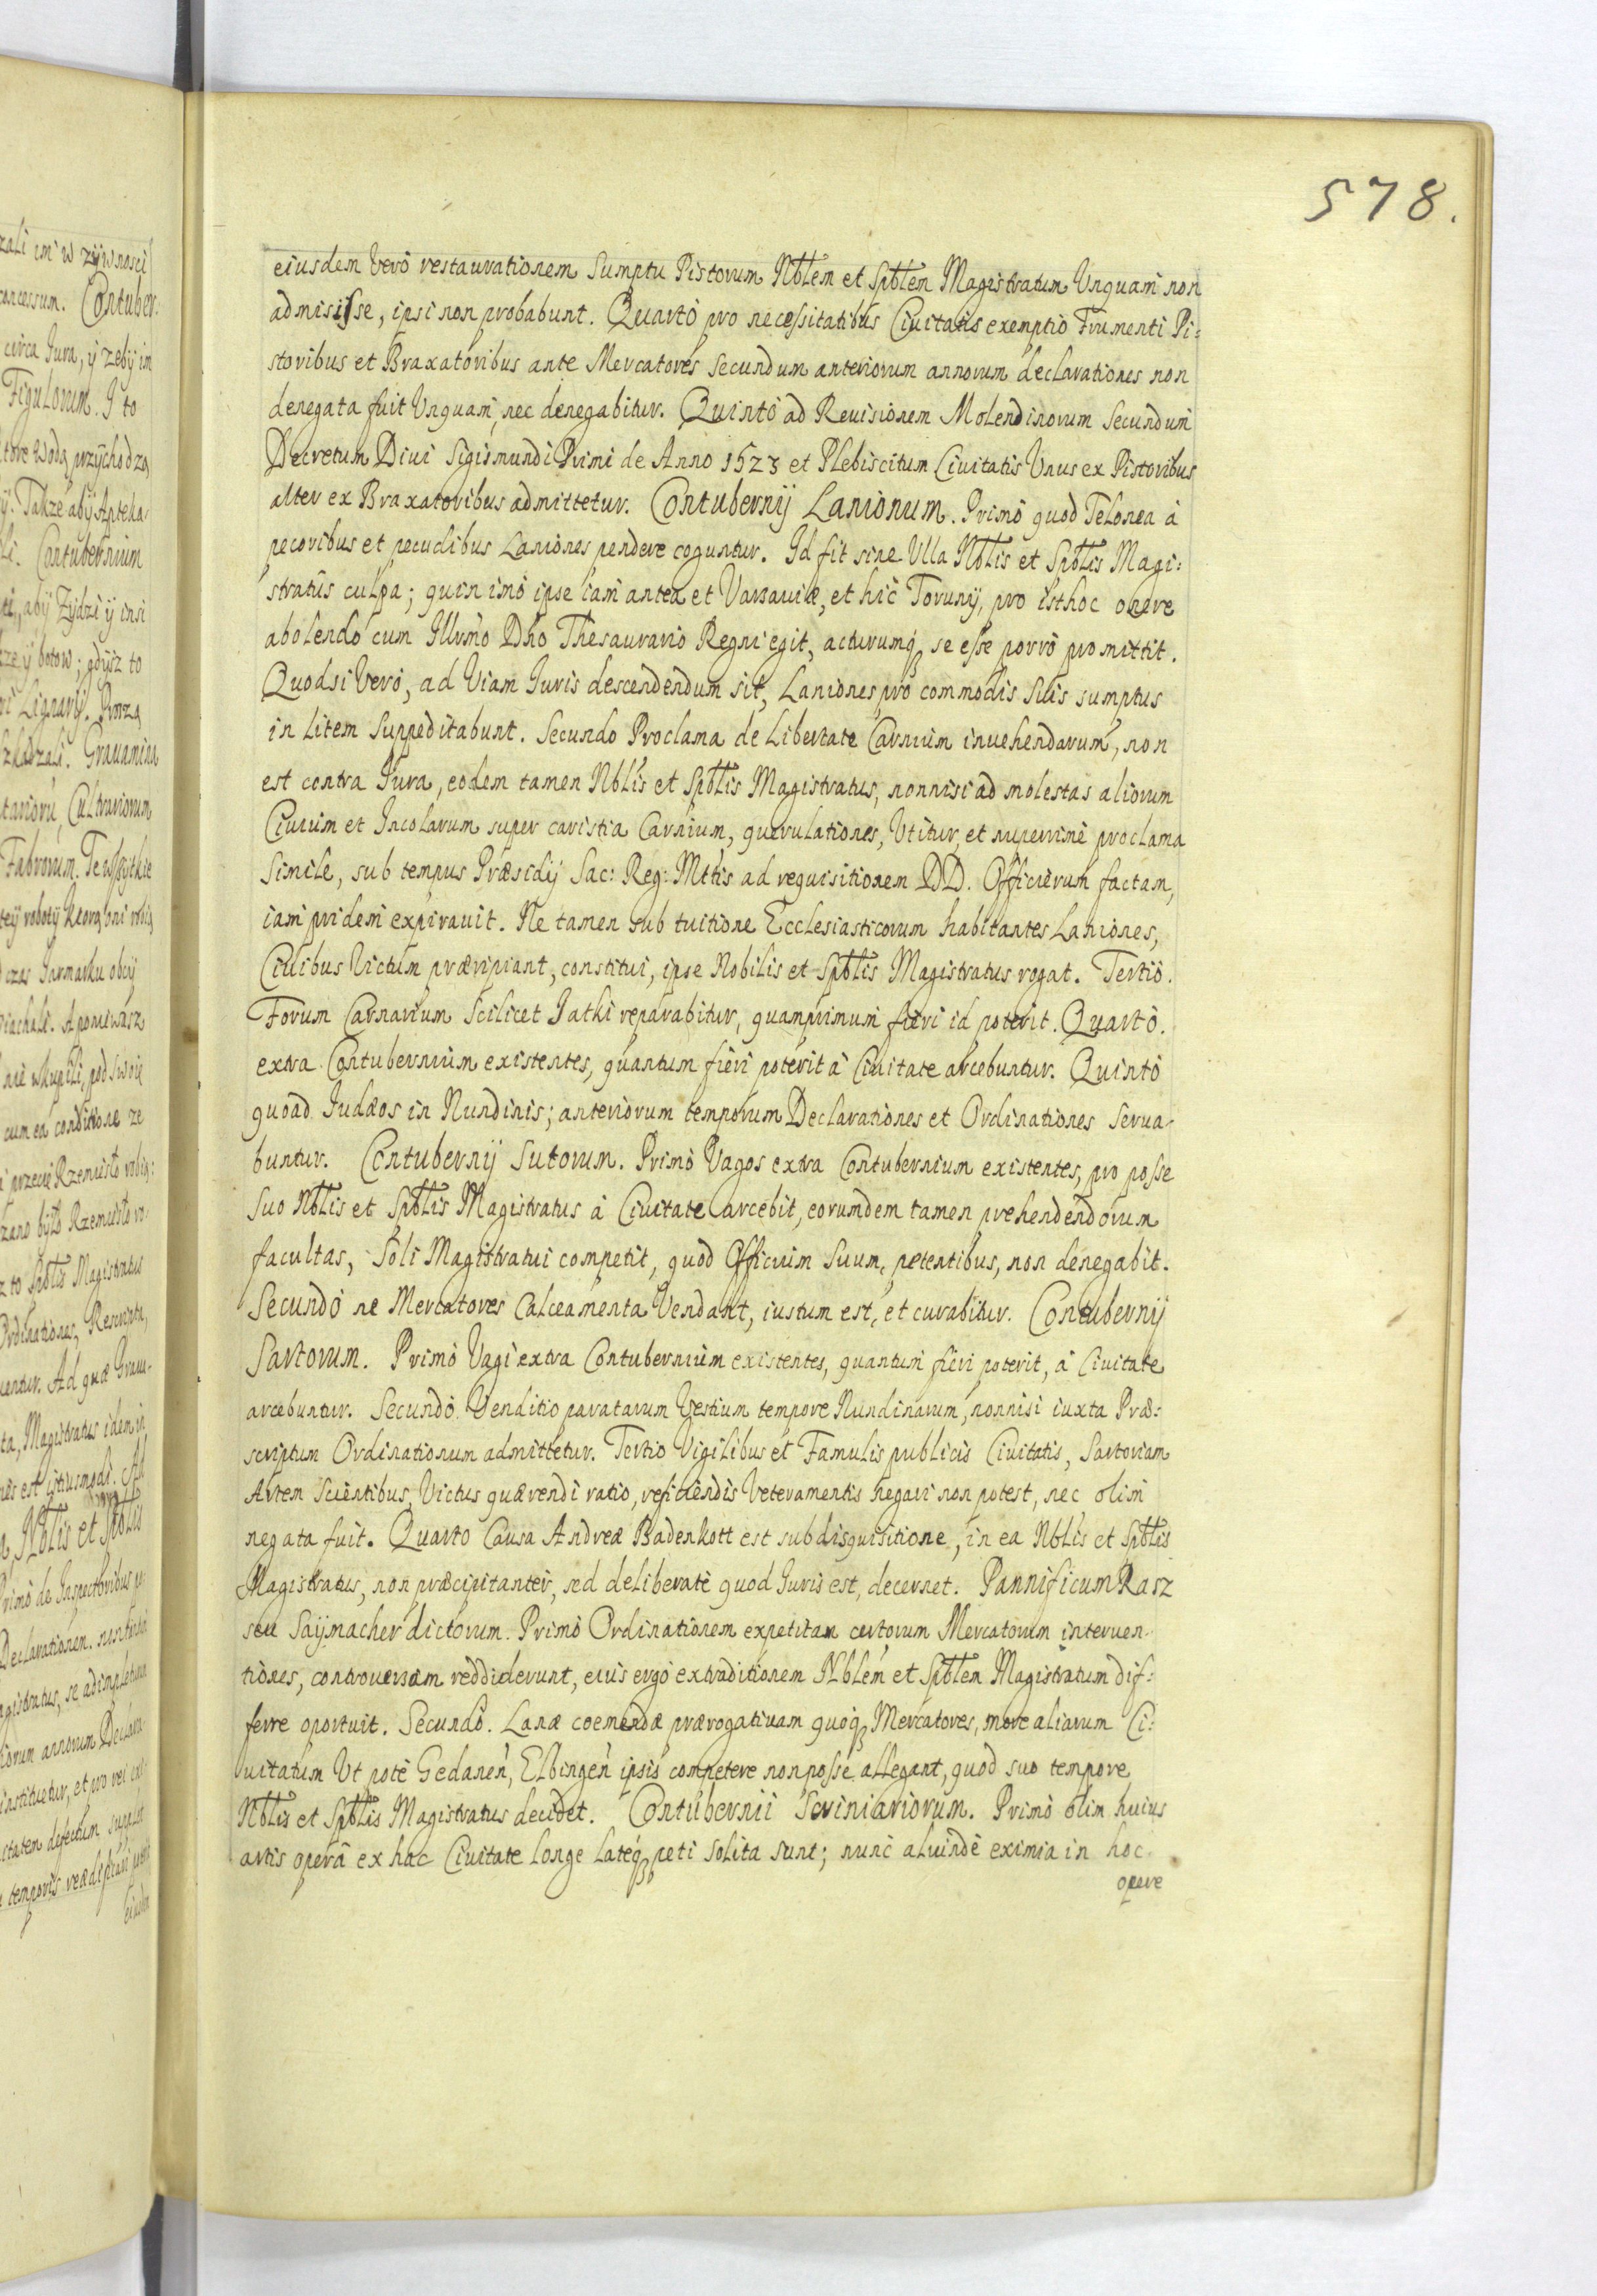 578.
eiusdem Verò restaurationem Sumptu Pistorum Nblem et Spblem Magistratum Unquam non
admisisse, ipsi non probabunt. Quartò pro necessitatibus Ciuitatis exemptio Frumenti Pi:
storibus et Braxatoribus ante Mercatores Secundum anteriorum annorum declarationes non
denegata fuit Unquam, nec denegabitur. Quintò ad Reuisionem Molendinorum Secundum
Decretum Diui Sigismundi Primi de Anno 1523 et Plebiscitum Ciuitatis Unus ex Pistoribus
alter ex Braxatoribus admittetur. Contubernij Lanionum. Primò quod Telonea à
pecoribus et pecudibus Laniones pendere coguntur. Id fit sine Ulla Nblis et Spblis Magi:
stratûs culpa; quin imò ipse iam antea et Varsauiæ, et hîc Torunij, pro isthoc onere
abolendo cum Illrmo Dno Thesaurario Regni egit, acturumq se esse porrò promittit.
Quodsi Verò, ad Viam Iuris descendendum sit, Laniones pro commodis Suis sumptus
in Litem Suppeditabunt. Secundo Proclama de Libertate Carnium inuehendarum, non
est contra Iura, eodem tamen Nblis et Spblis Magistratus, nonnisi ad molestas aliorum
Ciuium et Incolarum super caristia Carnium, querulationes, Utitur, et nuperrimè proclama
Simile, sub tempus Præsidij Sac: Reg: Mttis ad requisitionem DD. Officierum factam,
iam pridem expirauit. Ne tamen sub tuitione Ecclesiasticorum habitantes Laniones,
Ciuibus Victum præripiant, constitui, ipse Nobilis et Spblis Magistratus rogat. Tertiò.
Forum Carnarium Scilicet Jatki reparabitur, quamprimum fieri id poterit. Quartò.
extra Contubernium existentes, quantum fieri poterit à Ciuitate arcebuntur. Quintò
quoad Iudæos in Nundinis; anteriorum temporum Declarationes et Ordinationes Serua-
buntur. Contubernij Sutorum. Primò Vagos extra Contubernium existentes, pro posse
Suo Nblis et Spblis Magistratus à Ciuitate arcebit, eorundem tamen prehendendorum
facultas, Soli Magistratui competit, quod Officium Suum, petentibus, non denegabit.
Secundò ne Mercatores Calceamenta Vendant, iustum est, et curabitur. Contubernij
Sartorum. Primò Vagi extra Contubernium existentes, quantum fieri poterit, à Ciuitate
arcebuntur. Secundò Venditio paratarum Vestium tempore Nundinarum, nonnisi iuxta Præ:
scriptum Ordinationum admittetur. Tertio Vigilibus et Famulis publicis Ciuitatis, Sartoriam
Artem Scientibus, Victus quærendi ratio, reficiendis Veteramentis negari non potest, nec olim
negata fuit. Quarto Causa Andreæ Badenkott est sub disquisitione, in ea Nblis et Spblis
Magistratus, non præcipitanter, sed deliberatè quod Iuris est, decernet. Pannificum Rasz
seu Saijmacher dictorum. Primò Ordinationem expetitam certorum Mercatorum interuen-
tiones, controuersam reddiderunt, eius ergò extraditionem Nblem et Spblem Magistratum dif:
ferre oportuit. Secundò. Lanæ coemendæ prærogatiuam quoq Mercatores, more aliarum Ci:
uitatum Ut potè Gedanen, Elbingen ipsis competere non posse allegant, quod suo tempore
Nblis et Spblis Magistratus decidet. Contubernii Scriniariorum. Primò olim huius
artis operâ ex hac Ciuitate Longe Lateq peti Solita Sunt; nunc aliundè eximia in hoc
opere